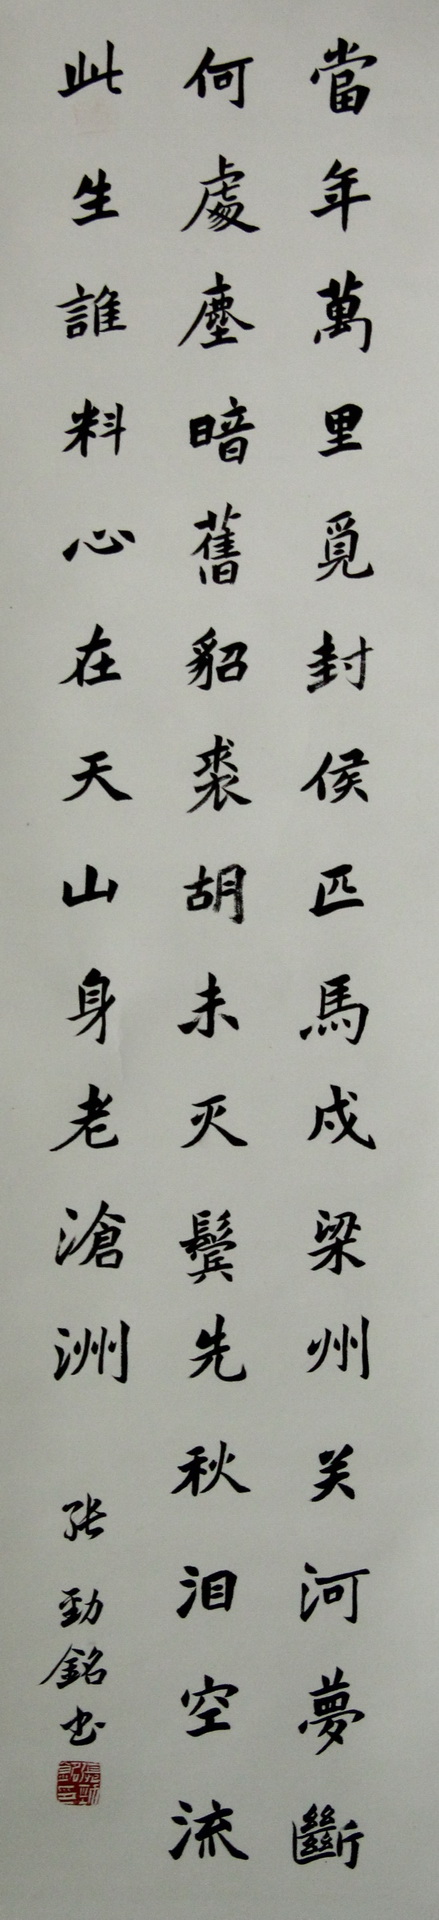 當年萬里覓封侯匹馬戍梁州关河夢斷
何處塵暗舊貂裘胡未灭鬓先秋泪空流
此生誰料心在天山身老滄洲
张勁銘书